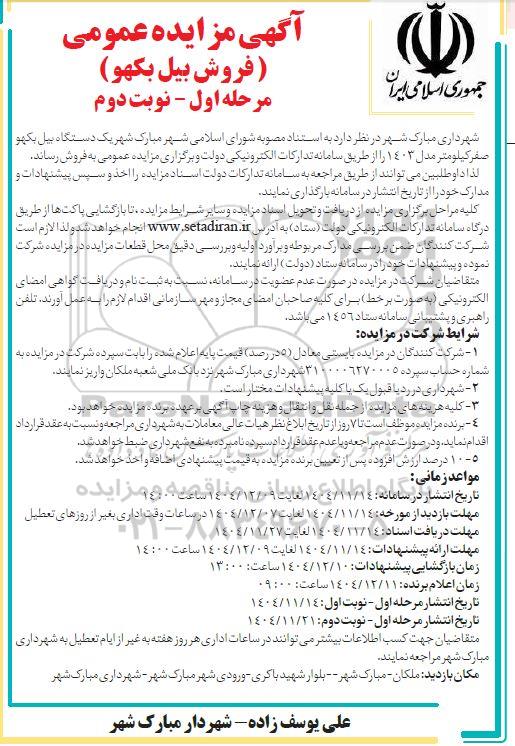 جمهوری اسلامی ایران
آگهی مزایده عمومی
(فروش بیل بکهو)
مرحله اول - نوبت دوم
شهرداری مبارک شهر در نظر دارد به استناد مصوبه شورای اسلامی شهر مبارک شهر یک دستگاه بیل بکهو
صفر کیلومتر مدل ۱۴۰۳ را از طریق سامانه تدارکات الکترونیکی دولت و برگزاری مزایده عمومی به فروش رساند.
لذا داوطلبین می توانند از طریق مراجعه به سامانه تدارکات دولت اسناد مزایده را اخذ و سپس پیشنهادات و
مدارک خود را از تاریخ انتشار در سامانه بارگذاری نمایند.
کلیه مراحل برگزاری مزایده از دریافت و تحویل اسناد مزایده و سایر شرایط مزایده، تا بازگشایی پاکت‌ها از طریق
درگاه سامانه تدارکات الکترونیکی دولت (ستاد) به آدرس www.setadiran.ir انجام خواهد شد ولذا لازم است
شرکت کنندگان ضمن بررسی مدارک مربوطه و برآورد اولیه و بررسی دقیق محل قطعات مزایده در مزایده شرکت
نموده و پیشنهادات خود را در سامانه ستاد (دولت) ارائه نمایند.
متقاضیان شرکت در مزایده در صورت عدم عضویت در سامانه، نسبت به ثبت نام و دریافت گواهی امضای
الکترونیکی (به صورت بر خط) برای کلیه صاحبان امضای مجاز و مهر سازمانی اقدام لازم را به عمل آورند، تلفن
راهبری و پشتیبانی سامانه ستاد ۱۴۵۶ می باشد.
شرایط شرکت در مزایده:
۱- شرکت کنندگان در مزایده بایستی معادل (۵ در صد) قیمت پایه اعلام شده را بابت سپرده شرکت در مزایده به
شماره حساب سپرده ۳۱۰۰۰۰۶۲۷۰۰۰۵ شهرداری مبارک شهر نزد بانک ملی شعبه ملکان واریز نمایند.
۲- شهرداری در رد یا قبول یک یا کلیه پیشنهادات مختار است.
۳- کلیه هزینه های مزایده از جمله نقل و انتقال و هزینه چاپ آگهی بر عهده برنده مزایده خواهد بود.
۴- برنده مزایده موظف است تا ۷ روز از تاریخ ابلاغ نظر هیات عالی معاملات به شهرداری مراجعه و نسبت به عقد قرارداد
اقدام نماید. و در صورت عدم مراجعه و یا عدم عقد قرارداد سپرده نامبرده به نفع شهرداری ضبط خواهد شد.
۵- ۱۰ درصد ارزش افزوده پس از تعیین برنده مزایده به قیمت پیشنهادی اضافه و اخذ خواهد شد.
مواعد زمانی:
تاریخ انتشار در سامانه: ۱۴۰۴/۱۱/۱۴ لغایت ۱۴۰۴/۱۲/۰۹ ساعت ۱۴:۰۰
مهلت بازدید از مورخه: ۱۴۰۴/۱۱/۱۴ لغایت ۱۴۰۴/۱۲/۰۷ در ساعات وقت اداری بغیر از روزهای تعطیل
مهلت دریافت اسناد: ۱۴۰۴/۱۱/۱۴ لغایت ۱۴۰۴/۱۱/۲۷
مهلت ارائه پیشنهادات: ۱۴۰۴/۱۱/۱۴ لغایت ۱۴۰۴/۱۲/۰۹ ساعت ۱۴:۰۰
زمان بازگشایی پیشنهادات: ۱۴۰۴/۱۲/۱۰ ساعت: ۱۳:۰۰
زمان اعلام برنده: ۱۴۰۴/۱۲/۱۱ ساعت: ۰۹:۰۰
تاریخ انتشار مرحله اول - نوبت اول: ۱۴۰۴/۱۱/۱۴
تاریخ انتشار مرحله اول - نوبت دوم: ۱۴۰۴/۱۱/۲۱
متقاضیان جهت کسب اطلاعات بیشتر می توانند در ساعات اداری هر روز هفته به غیر از ایام تعطیل به شهرداری
مبارک شهر مراجعه نمایند.
مکان بازدید: ملکان - مبارک شهر -- بلوار شهید باکری - ورودی شهر مبارک شهر - شهرداری مبارک شهر
علی یوسف زاده - شهردار مبارک شهر